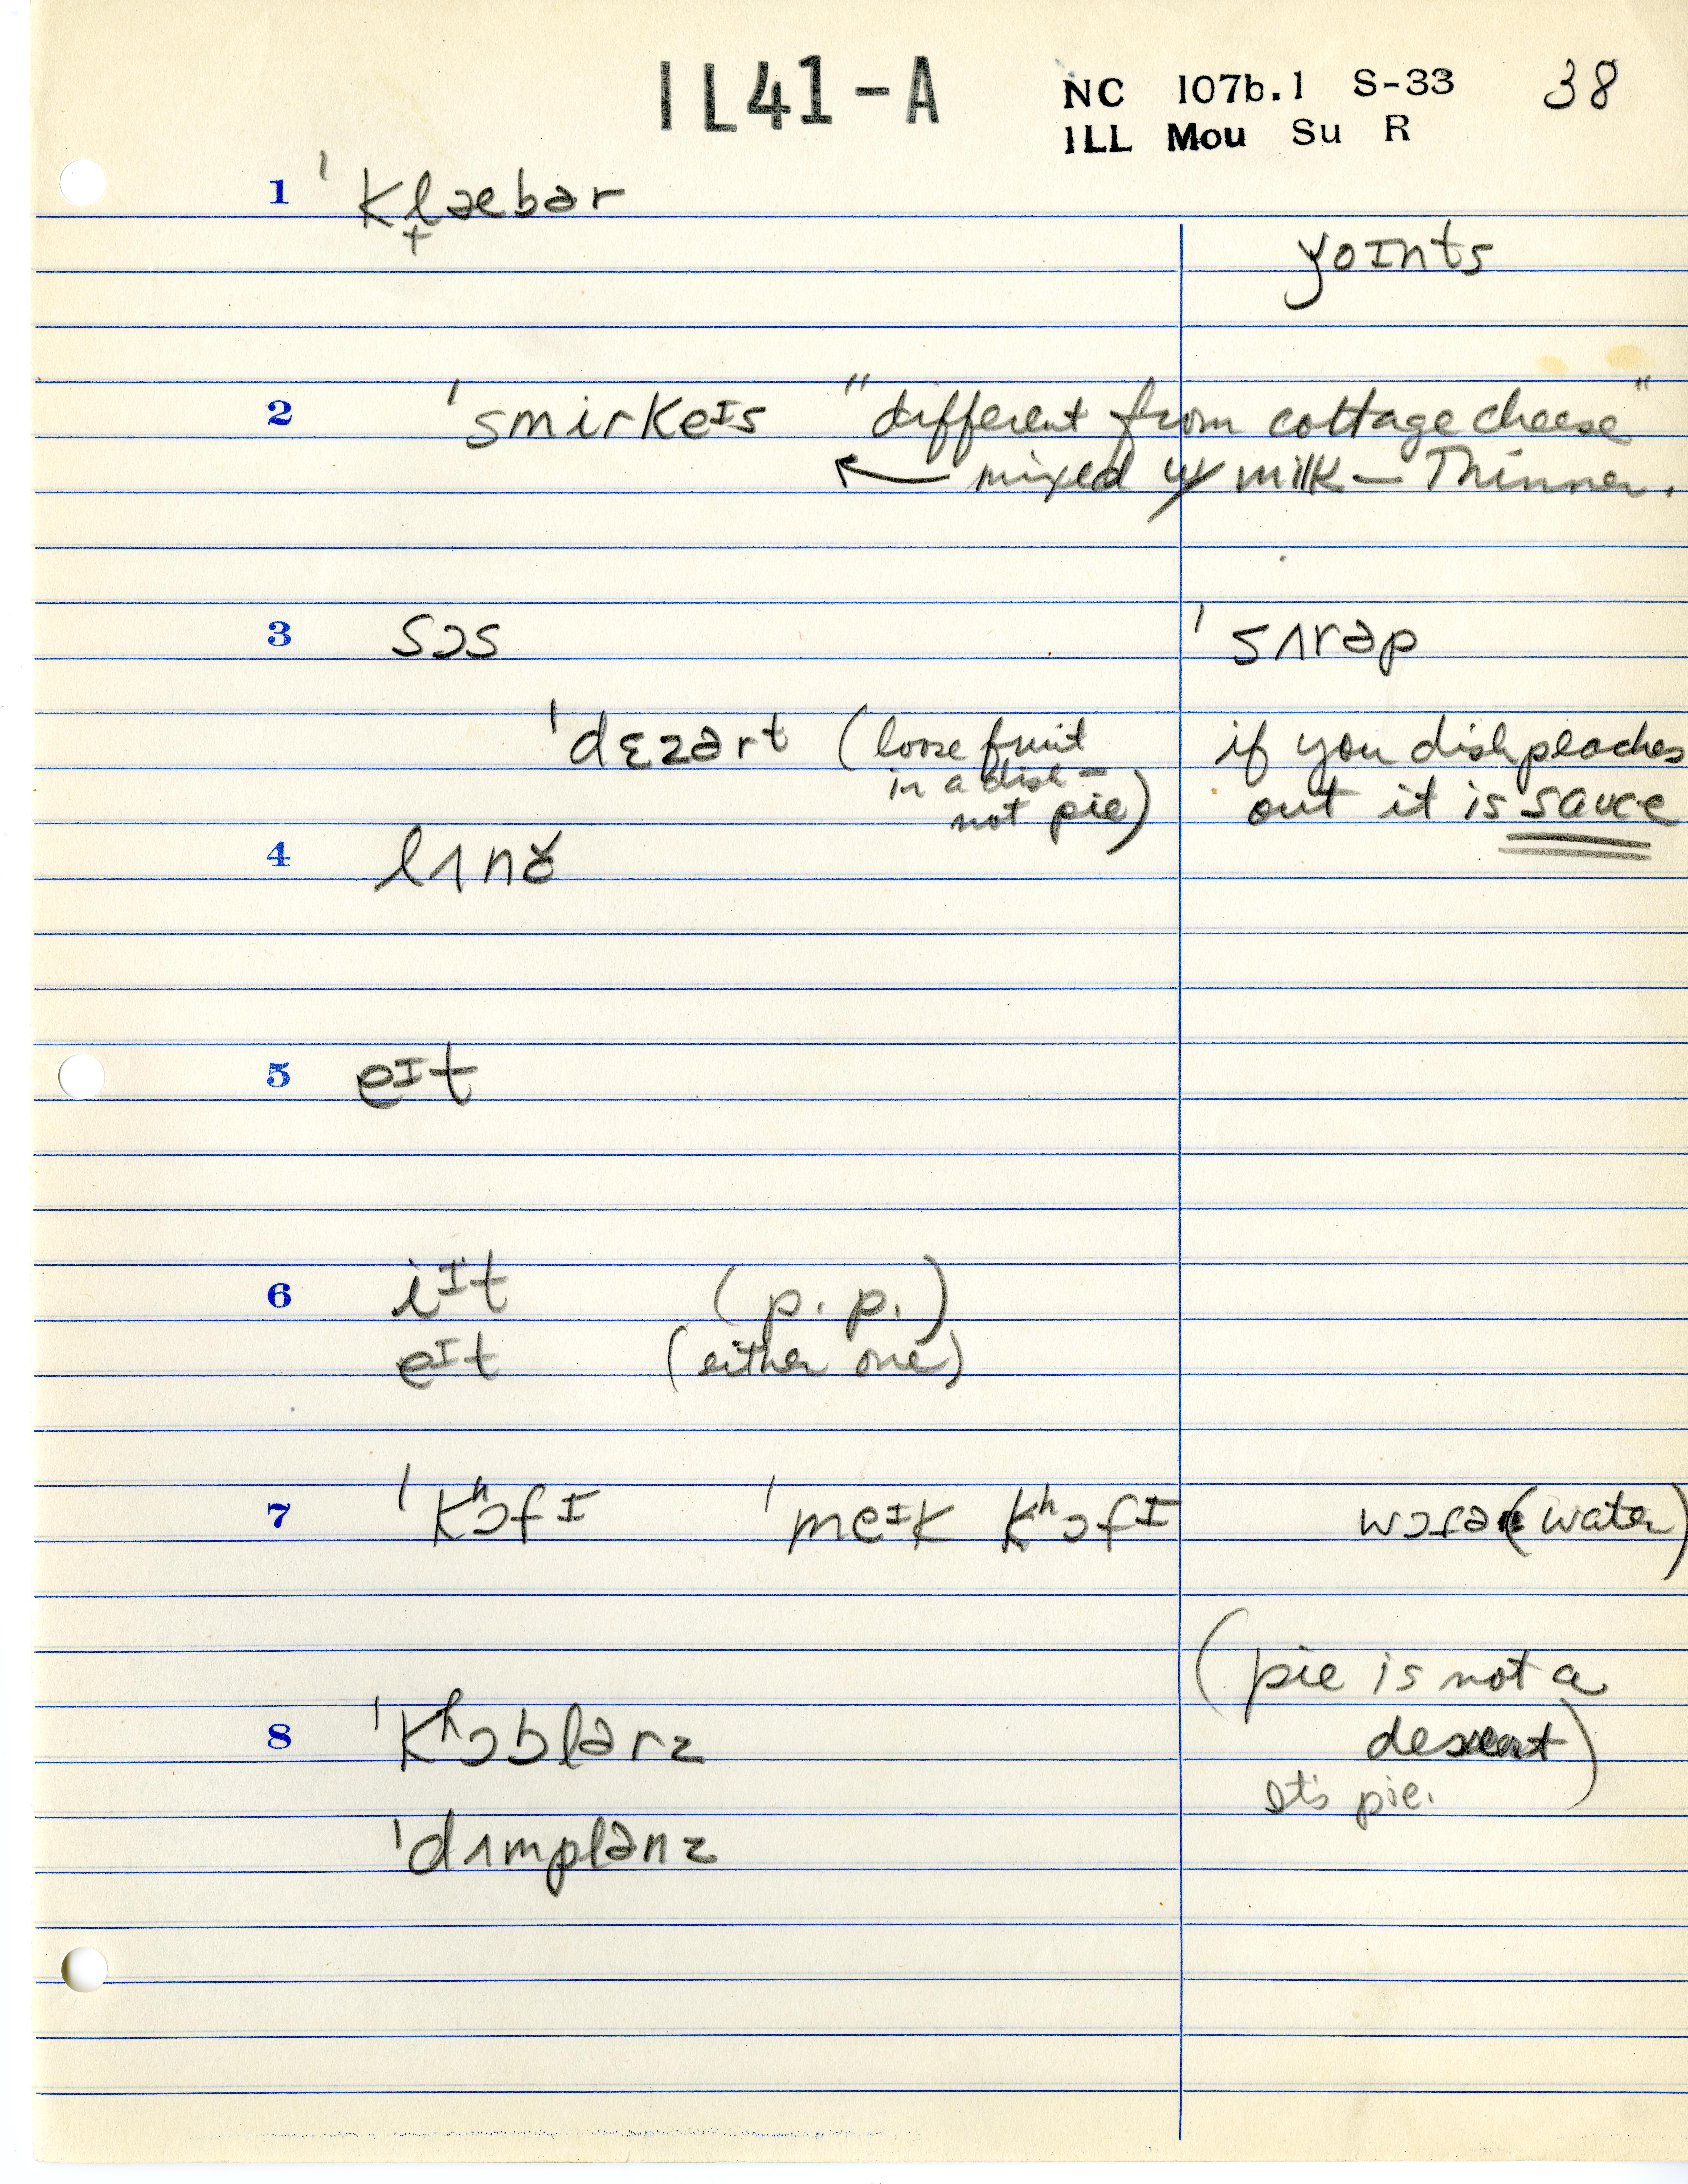 IL41-A NC 107b.1 S-33 38
ILL Mou Su R
1 ˈkl̟æbər
yoɪnts
2 ˈsmirkeɪs "different from cottage cheese"
← mixed w/ milk — Thinner.
3 sɔs ˈsʌrəp
ˈdɛzərt (loose fruit if you dish peaches
in a dish — out it is sauce
not pie)
4 lʌnɤ
5 eɪt
6 iᶦt (p. p.)
eᶦt (either one)
7 ˈkʰɔfɪ ˈmeɪk kʰɔfɪ wɔɾə (water)
(pie is not a
8 ˈkʰɔblərz dessert)
It's pie.
ˈdʌmplənz